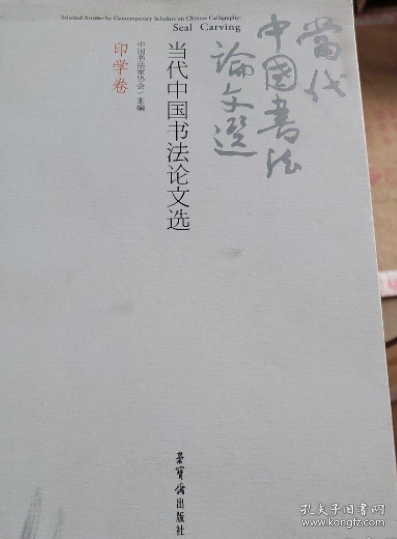 Selected Articles by Contemporary Scholars on Chinese Calligraphy:
Seal Carving
當代
中國書法
論文選
当代中国书法论文选
中国书法家协会/主编
印学卷
荣宝斋出版社
孔夫子旧书网
book.kongfz.com